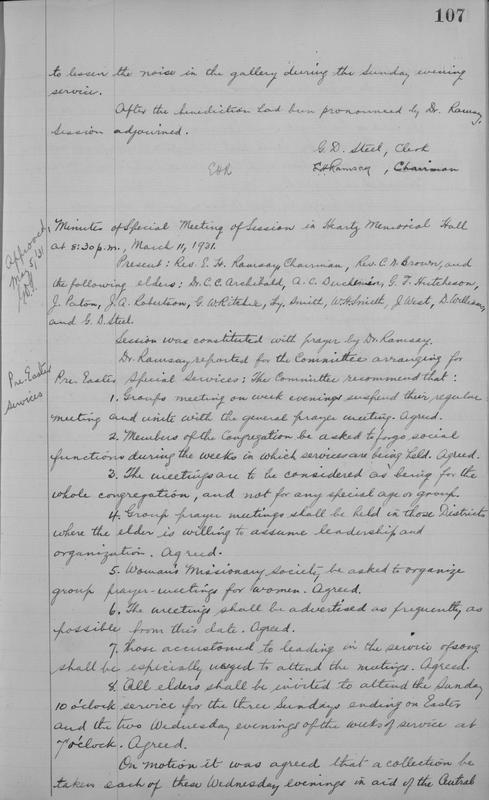 107
to lessen the noise in the gallery during the Sunday evening
service.
After the benediction had been pronounced by Dr. Ramsay,
Session adjourned.
G. D. Steel, Clerk
EHR
E H Ramsay, Chairman
Approved,
May 5/31
Minutes of Special Meeting of Session in Heartz Memorial Hall
at 8:30 p.m., March 11, 1931.
Present: Rev. E. H. Ramsay Chairman, Rev. C. D. Brown, and
the following elders: Dr. C. C. Archibald, A. C. Duchemin, G. F. Hutcheson,
J. Paton, J. A. Robertson, G. W. Ritchie, Smith, W. H. Smith, J. West, D. Williams,
and G. D. Steel.
Session was constituted with prayer by Dr. Ramsay.
Dr. Ramsay reported for the Committee arranging for
Pre-Easter
services
Pre-Easter Special Services: The Committee recommend that:
1. Groups meeting on week evenings suspend their regular
meeting and unite with the general prayer meeting. Agreed.
2. Members of the Congregation be asked to forgo social
functions during the weeks in which services are being held. Agreed.
3. The meetings are to be considered as being for the
whole congregation, and not for any special age or group.
4. Group prayer meetings shall be held in those Districts
where the elder is willing to assume leadership and
organization. Agreed.
5. Woman's Missionary Society, be asked to organize
group prayer-meetings for women. Agreed.
6. The meetings shall be advertised as frequently as
possible from this date. Agreed.
7. Those accustomed to leading in the service of song
shall be especially urged to attend the meetings. Agreed.
8. All elders shall be invited to attend the Sunday
10 o'clock service for the three Sundays ending on Easter
and the two Wednesday evenings of the weeks of service at
7 o'clock. Agreed.
On motion it was agreed that a collection be
taken each of these Wednesday evenings in aid of the Central